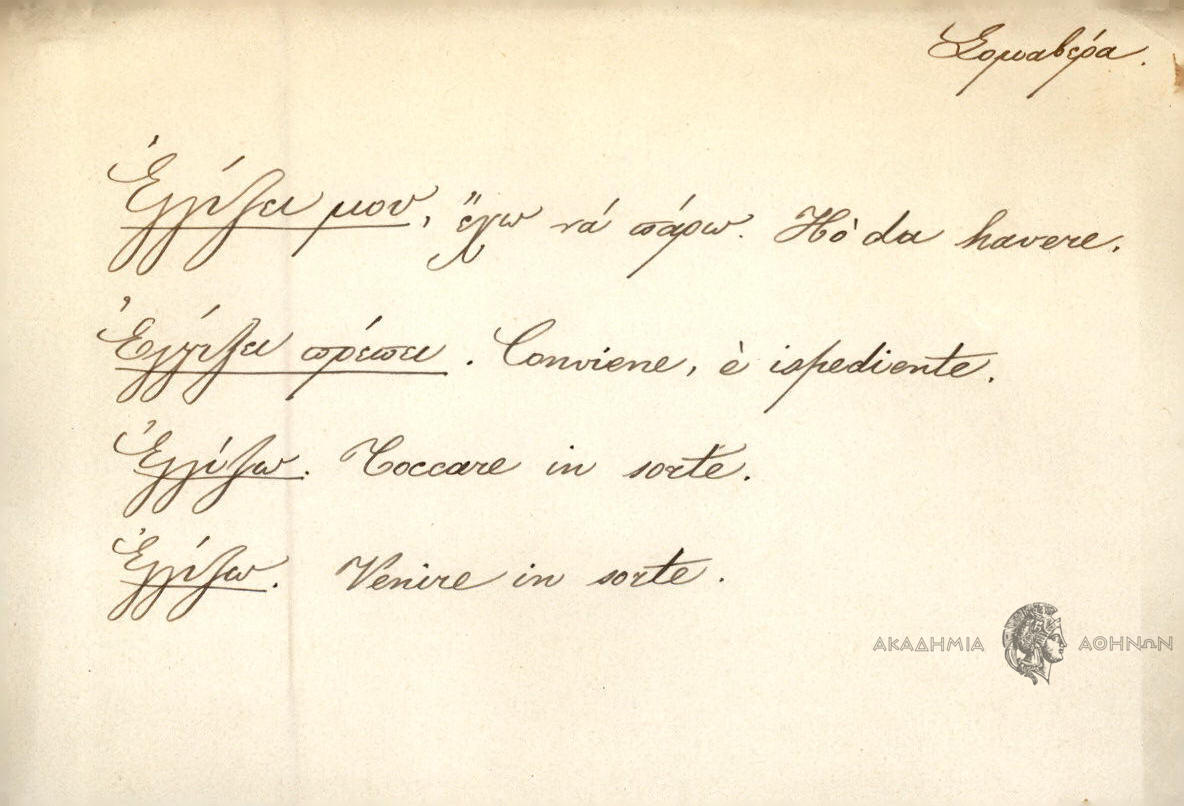 Σομαβέρα.
Ἐγγίζει μου, ἔχω νά πάρω. Hò da havere.
Ἐγγίζει πρέπει. Conviene, è ispediente.
Ἐγγίζω. Toccare in sorte.
Ἐγγίζω. Venire in sorte.
ΑΚΑΔΗΜΙΑ ΑΘΗΝΩΝ